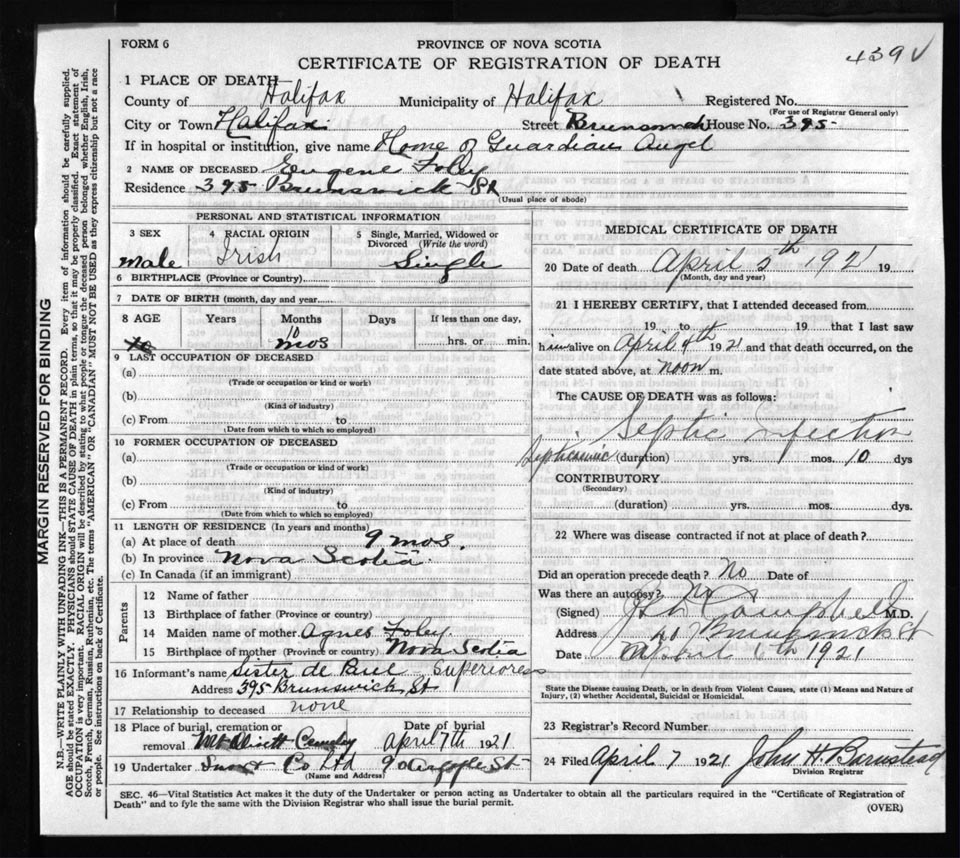 FORM 6
PROVINCE OF NOVA SCOTIA
CERTIFICATE OF REGISTRATION OF DEATH
439 V
1 PLACE OF DEATH
County of Halifax Municipality of Halifax Registered No.
(For use of Registrar General only)
City or Town Halifax Street Brunswick House No. 395
If in hospital or institution, give name Home of Guardian Angel
2 NAME OF DECEASED Eugene Foley
Residence 395 Brunswick St
(Usual place of abode)
PERSONAL AND STATISTICAL INFORMATION
3 SEX
male
4 RACIAL ORIGIN
Irish
5 Single, Married, Widowed or Divorced (Write the word)
Single
6 BIRTHPLACE (Province or Country)
7 DATE OF BIRTH (month, day and year)
8 AGE Years Months Days If less than one day,
10 mos hrs. or min.
9 LAST OCCUPATION OF DECEASED
(a)
(Trade or occupation or kind or work)
(b)
(Kind of industry)
(c) From to
(Date from which to which so employed)
10 FORMER OCCUPATION OF DECEASED
(a)
(Trade or occupation or kind of work)
(b)
(Kind of industry)
(c) From to
(Date from which to which so employed)
11 LENGTH OF RESIDENCE (In years and months)
(a) At place of death 9 mos.
(b) In province Nova Scotia
(c) In Canada (if an immigrant)
Parents
12 Name of father
13 Birthplace of father (Province or country)
14 Maiden name of mother Agnes Foley
15 Birthplace of mother (Province or country) Nova Scotia
16 Informant's name Sister de Superioress
Address 395 Brunswick St
17 Relationship to deceased none
18 Place of burial, cremation or removal Mt Olivett Cemetery
Date of burial April 7th 1921
19 Undertaker Snow & Co Ltd 90 Argyle St
(Name and Address)
MEDICAL CERTIFICATE OF DEATH
20 Date of death April 5th 1921 19
(Month, day and year)
21 I HEREBY CERTIFY, that I attended deceased from
19 to 19 that I last saw
him alive on April 4th 1921 and that death occurred, on the
date stated above, at noon m.
The CAUSE OF DEATH was as follows:
Septic Infection
Septicaemic (duration) yrs. mos. 10 dys
CONTRIBUTORY
(Secondary)
(duration) yrs. mos. dys.
22 Where was disease contracted if not at place of death?
Did an operation precede death? No Date of
Was there an autopsy? No
(Signed) Campbell M.D.
Address 407 Brunswick St
Date April 6th 1921
State the Disease causing Death, or in death from Violent Causes, state (1) Means and Nature of
Injury, (2) whether Accidental, Suicidal or Homicidal.
23 Registrar's Record Number
24 Filed April 7 1921 John H. Barnstead
Division Registrar
SEC. 46—Vital Statistics Act makes it the duty of the Undertaker or person acting as Undertaker to obtain all the particulars required in the "Certificate of Registration of
Death" and to fyle the same with the Division Registrar who shall issue the burial permit.
(OVER)
MARGIN RESERVED FOR BINDING
N.B.—WRITE PLAINLY WITH UNFADING INK—THIS IS A PERMANENT RECORD. Every item of information should be carefully supplied.
AGE should be stated EXACTLY. PHYSICIANS should STATE CAUSE OF DEATH in plain terms, so that it may be properly classified. Exact statement of
OCCUPATION is very important. RACIAL ORIGIN will be described by stating to what people or tongue the deceased person belonged whether English, Irish,
Scotch, French, German, Russian, Ruthenian, etc. The terms "AMERICAN" OR "CANADIAN" MUST NOT BE USED as they express citizenship but not a race
or people. See instructions on back of Certificate.